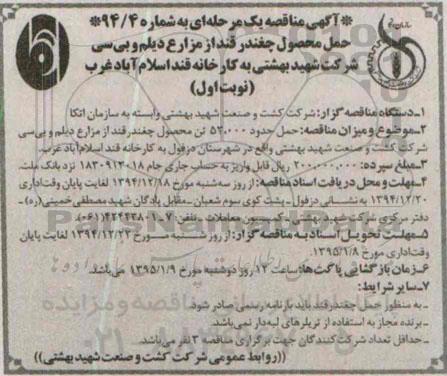 *آگهی مناقصه یک مرحله‌ای به شماره ۹۴/۴*
حمل محصول چغندر قند از مزارع دیلم و بی سی
شرکت شهید بهشتی به کارخانه قند اسلام آباد غرب
(نوبت اول)
۱-دستگاه مناقصه گزار: شرکت کشت و صنعت شهید بهشتی وابسته به سازمان اتکا
۲-موضوع و میزان مناقصه: حمل حدود ۵۲،۰۰۰ تن محصول چغندر قند از مزارع دیلم و بی سی
شرکت کشت و صنعت شهید بهشتی واقع در شهرستان دزفول به کارخانه قند اسلام آباد غرب.
۳-مبلغ سپرده: ۲۰۰،۰۰۰،۰۰۰ ریال قابل واریز به حساب جاری جام ۱۸۳۰۹۱۳۰۱۸ نزد بانک ملت.
۴-مهلت و محل دریافت اسناد مناقصه: از روز سه‌شنبه مورخ ۱۳۹۴/۱۲/۱۸ لغایت پایان وقت اداری
۱۳۹۴/۱۲/۲۰ به نشانی دزفول - پشت کوی سوم شعبان - مقابل پادگان شهید مصطفی خمینی (ره) -
دفتر مرکزی شرکت شهید بهشتی - کمیسیون معاملات - تلفن: ۷-۴۲۴۴۳۸۰۱(۰۶۱)
۵-مهلت تحویل اسناد به مناقصه گزار: از روز شنبه مورخ ۱۳۹۴/۱۲/۲۲ لغایت پایان
وقت اداری مورخ ۱۳۹۵/۱/۸.
۶-زمان بازگشایی پاکت‌ها: ساعت ۱۲ روز دوشنبه مورخ ۱۳۹۵/۱/۹ می‌باشد.
۷-سایر شرایط:
- به منظور حمل چغندر قند باید بارنامه رسمی صادر شود.
- برنده مجاز به استفاده از تریلرهای لبه‌دار نمی‌باشد.
- حداقل تعداد شرکت کنندگان جهت برگزاری مناقصه ۳ نفر می‌باشد.
((روابط عمومی شرکت کشت و صنعت شهید بهشتی))